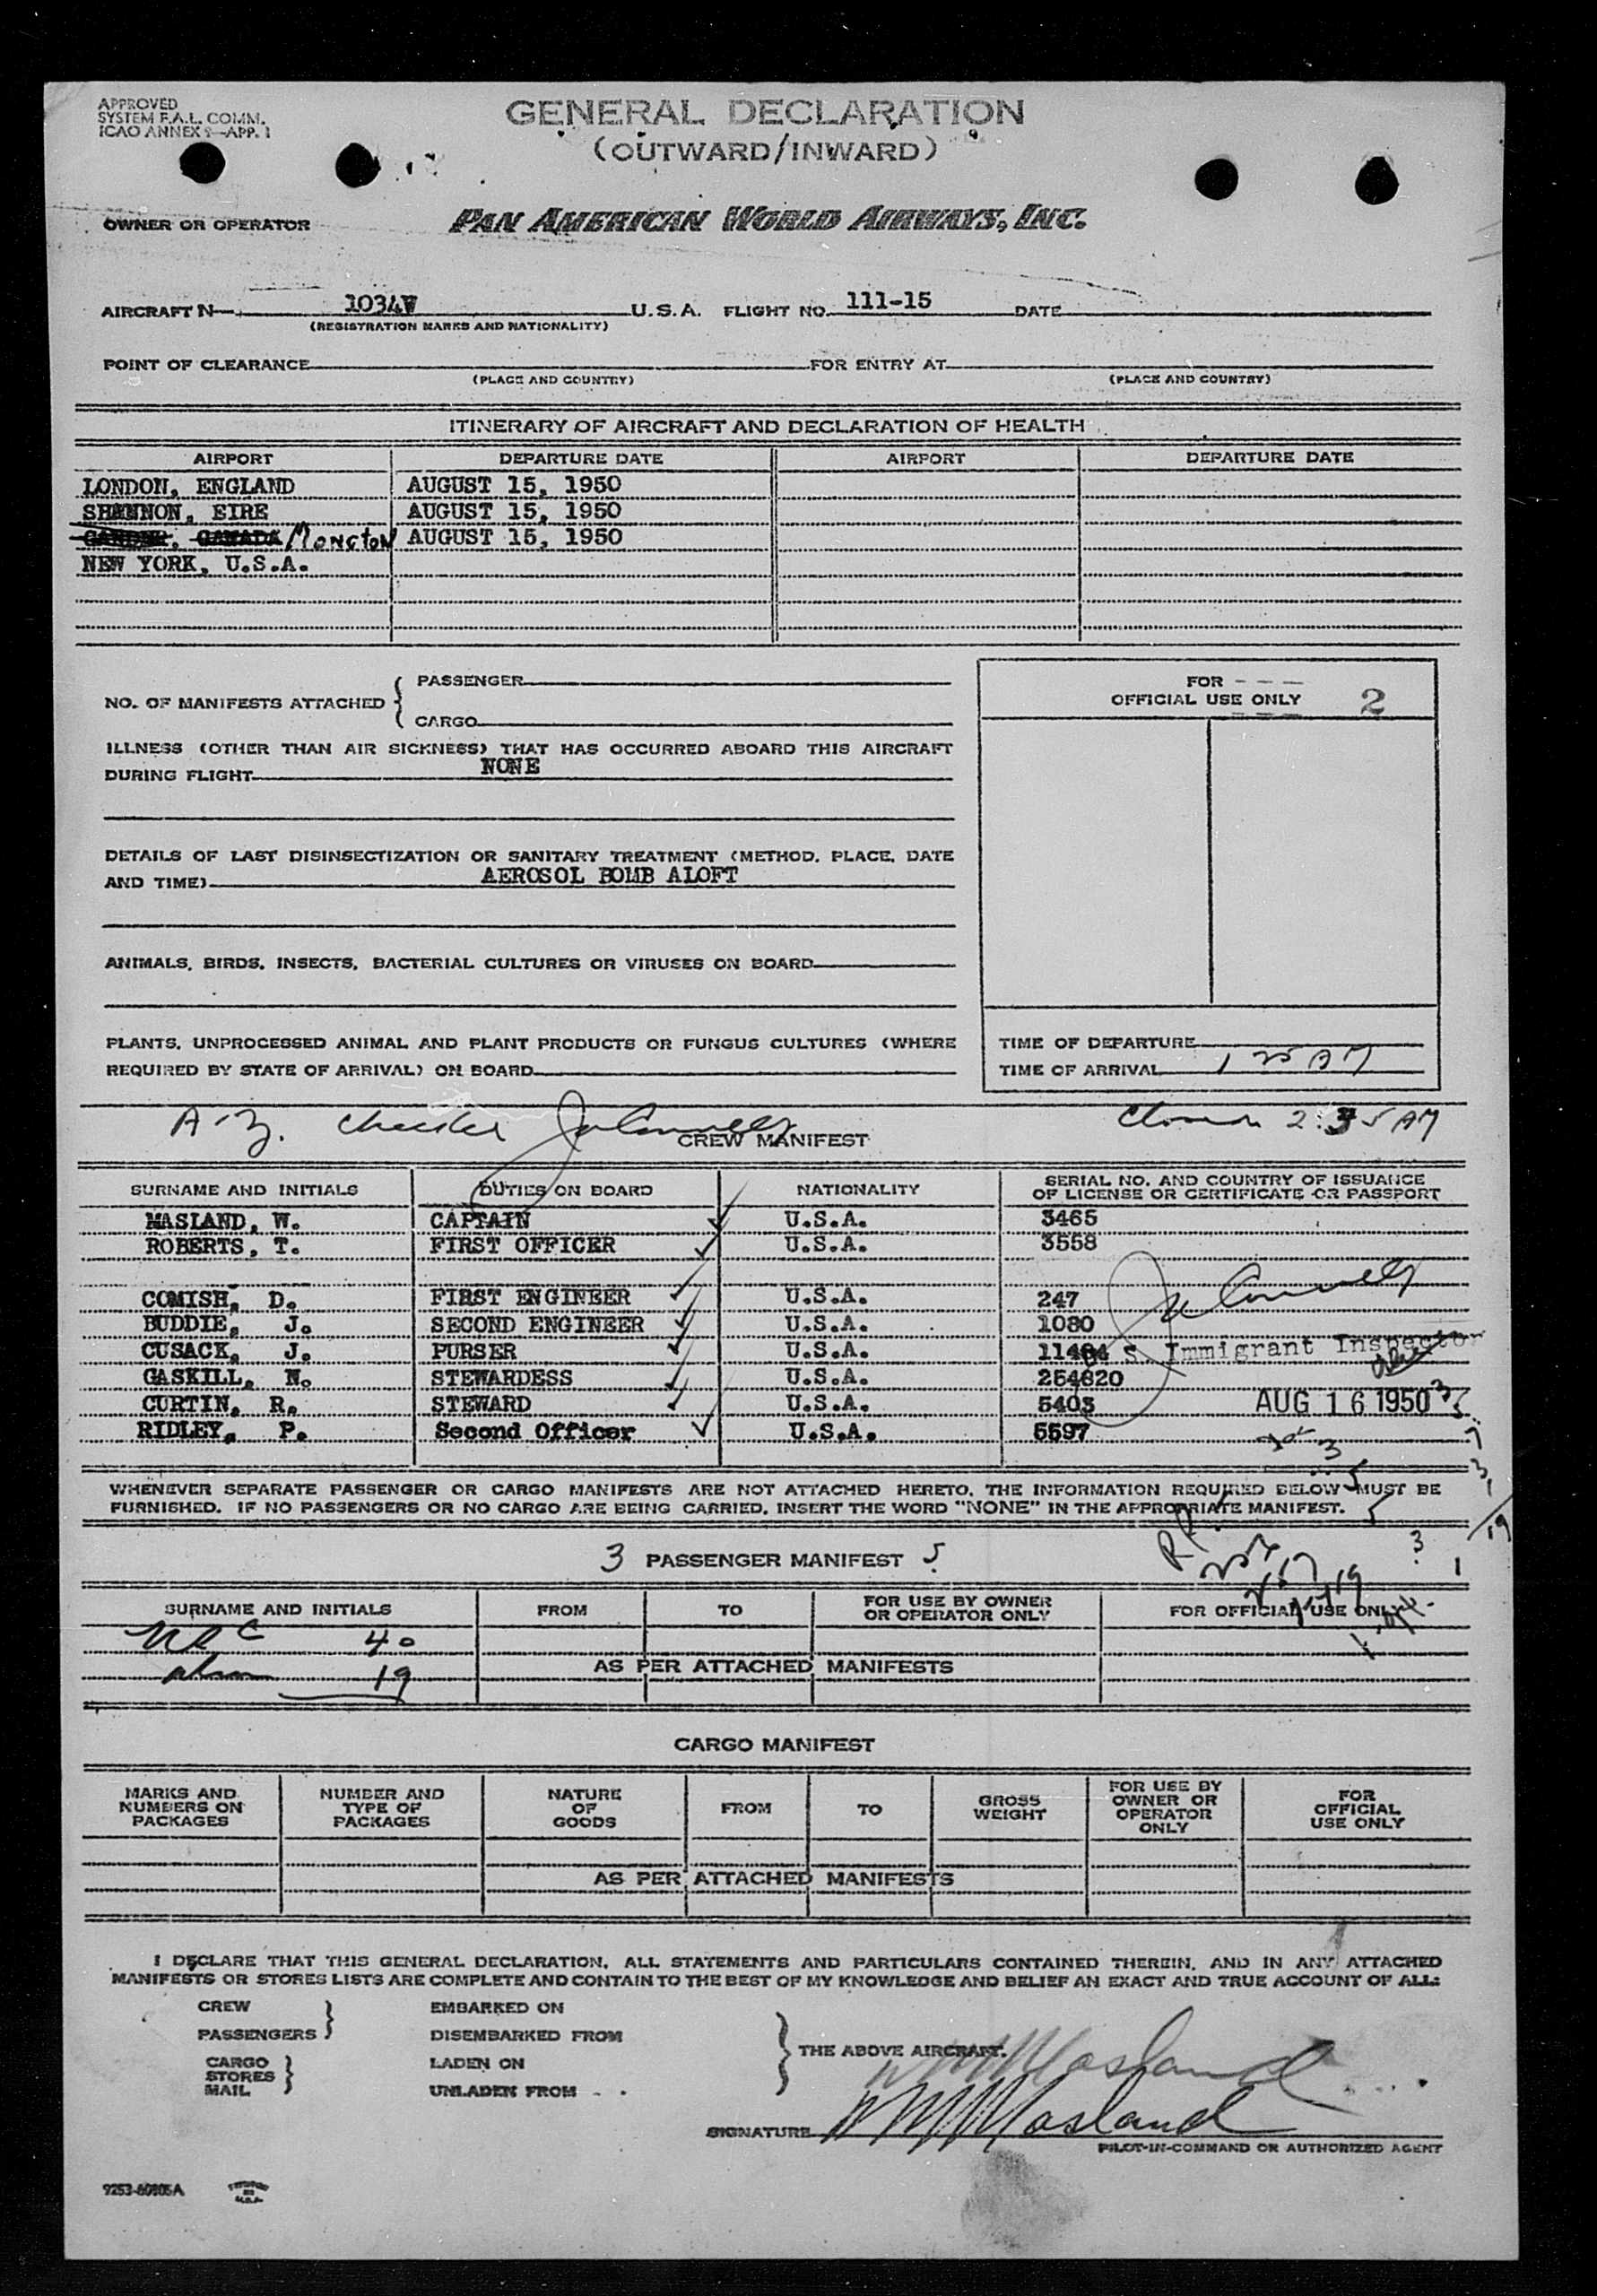 APPROVED
SYSTEM F.A.L. COMM.
ICAO ANNEX 9—APP. 1
GENERAL DECLARATION
(OUTWARD/INWARD)
OWNER OR OPERATOR PAN AMERICAN WORLD AIRWAYS, INC.
AIRCRAFT N— 1034V U.S.A. FLIGHT NO. 111-15 DATE
(REGISTRATION MARKS AND NATIONALITY)
POINT OF CLEARANCE FOR ENTRY AT
(PLACE AND COUNTRY) (PLACE AND COUNTRY)
ITINERARY OF AIRCRAFT AND DECLARATION OF HEALTH
AIRPORT DEPARTURE DATE AIRPORT DEPARTURE DATE
LONDON, ENGLAND AUGUST 15, 1950
SHANNON, EIRE AUGUST 15, 1950
GANDER, CANADA MONCTON AUGUST 15, 1950
NEW YORK, U.S.A.
NO. OF MANIFESTS ATTACHED { PASSENGER
CARGO
FOR
OFFICIAL USE ONLY 2
ILLNESS (OTHER THAN AIR SICKNESS) THAT HAS OCCURRED ABOARD THIS AIRCRAFT
DURING FLIGHT NONE
DETAILS OF LAST DISINSECTIZATION OR SANITARY TREATMENT (METHOD, PLACE, DATE
AND TIME) AEROSOL BOMB ALOFT
ANIMALS, BIRDS, INSECTS, BACTERIAL CULTURES OR VIRUSES ON BOARD
PLANTS, UNPROCESSED ANIMAL AND PLANT PRODUCTS OR FUNGUS CULTURES (WHERE
REQUIRED BY STATE OF ARRIVAL) ON BOARD
TIME OF DEPARTURE
TIME OF ARRIVAL 1 25 AM
2:35 AM
CREW MANIFEST
SURNAME AND INITIALS DUTIES ON BOARD NATIONALITY SERIAL NO. AND COUNTRY OF ISSUANCE
OF LICENSE OR CERTIFICATE OR PASSPORT
MASLAND, W. CAPTAIN U.S.A. 3465
ROBERTS, T. FIRST OFFICER U.S.A. 3558
COMISH, D. FIRST ENGINEER U.S.A. 247
BUDDIE, J. SECOND ENGINEER U.S.A. 1080
CUSACK, J. PURSER U.S.A. S. Immigrant Inspector
GASKILL, N. STEWARDESS U.S.A. 254820
CURTIN, R. STEWARD U.S.A. 5403 AUG 16 1950
RIDLEY, P. Second Officer U.S.A. 5597
WHENEVER SEPARATE PASSENGER OR CARGO MANIFESTS ARE NOT ATTACHED HERETO, THE INFORMATION REQUIRED BELOW MUST BE
FURNISHED. IF NO PASSENGERS OR NO CARGO ARE BEING CARRIED, INSERT THE WORD "NONE" IN THE APPROPRIATE MANIFEST.
3 PASSENGER MANIFEST 5
SURNAME AND INITIALS FROM TO FOR USE BY OWNER
OR OPERATOR ONLY FOR OFFICIAL USE ONLY
40
19
AS PER ATTACHED MANIFESTS
CARGO MANIFEST
MARKS AND
NUMBERS ON
PACKAGES
NUMBER AND
TYPE OF
PACKAGES
NATURE
OF
GOODS
FROM
TO
GROSS
WEIGHT
FOR USE BY
OWNER OR
OPERATOR
ONLY
FOR
OFFICIAL
USE ONLY
AS PER ATTACHED MANIFESTS
I DECLARE THAT THIS GENERAL DECLARATION, ALL STATEMENTS AND PARTICULARS CONTAINED THEREIN, AND IN ANY ATTACHED
MANIFESTS OR STORES LISTS ARE COMPLETE AND CONTAIN TO THE BEST OF MY KNOWLEDGE AND BELIEF AN EXACT AND TRUE ACCOUNT OF ALL:
CREW EMBARKED ON
PASSENGERS DISEMBARKED FROM
THE ABOVE AIRCRAFT.
CARGO LADEN ON
STORES
MAIL UNLADEN FROM
W M Masland
SIGNATURE W M Masland
PILOT-IN-COMMAND OR AUTHORIZED AGENT
9253-60805A